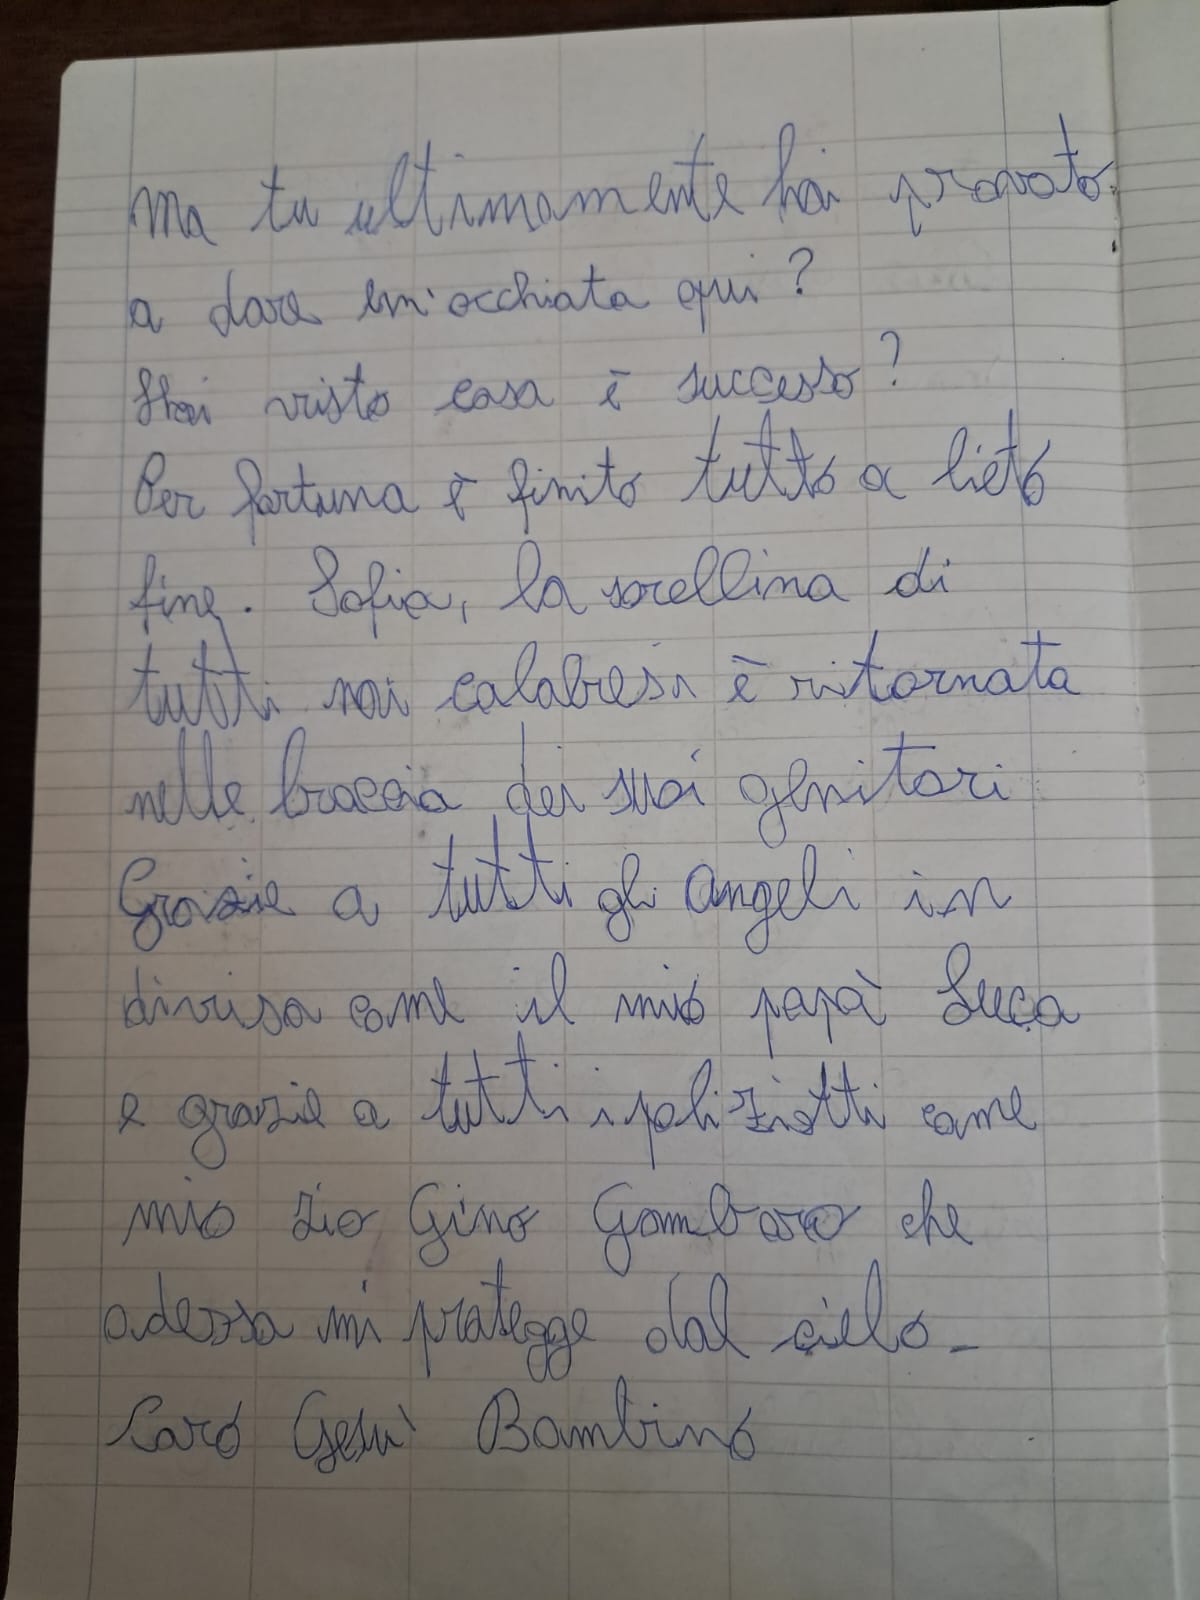 Ma tu ultimamente hai provato
a dare un'occhiata qui?
Hai visto cosa è successo?
Per fortuna è finito tutto a lieto
fine. Sofia, la sorellina di
tutti noi calabresi è ritornata
nelle braccia dei suoi genitori
Grazie a tutti gli angeli in
divisa come il mio papà Luca
e grazie a tutti i poliziotti come
mio zio Gino Gambaro che
adesso mi protegge dal cielo.
Caro Gesù Bambino